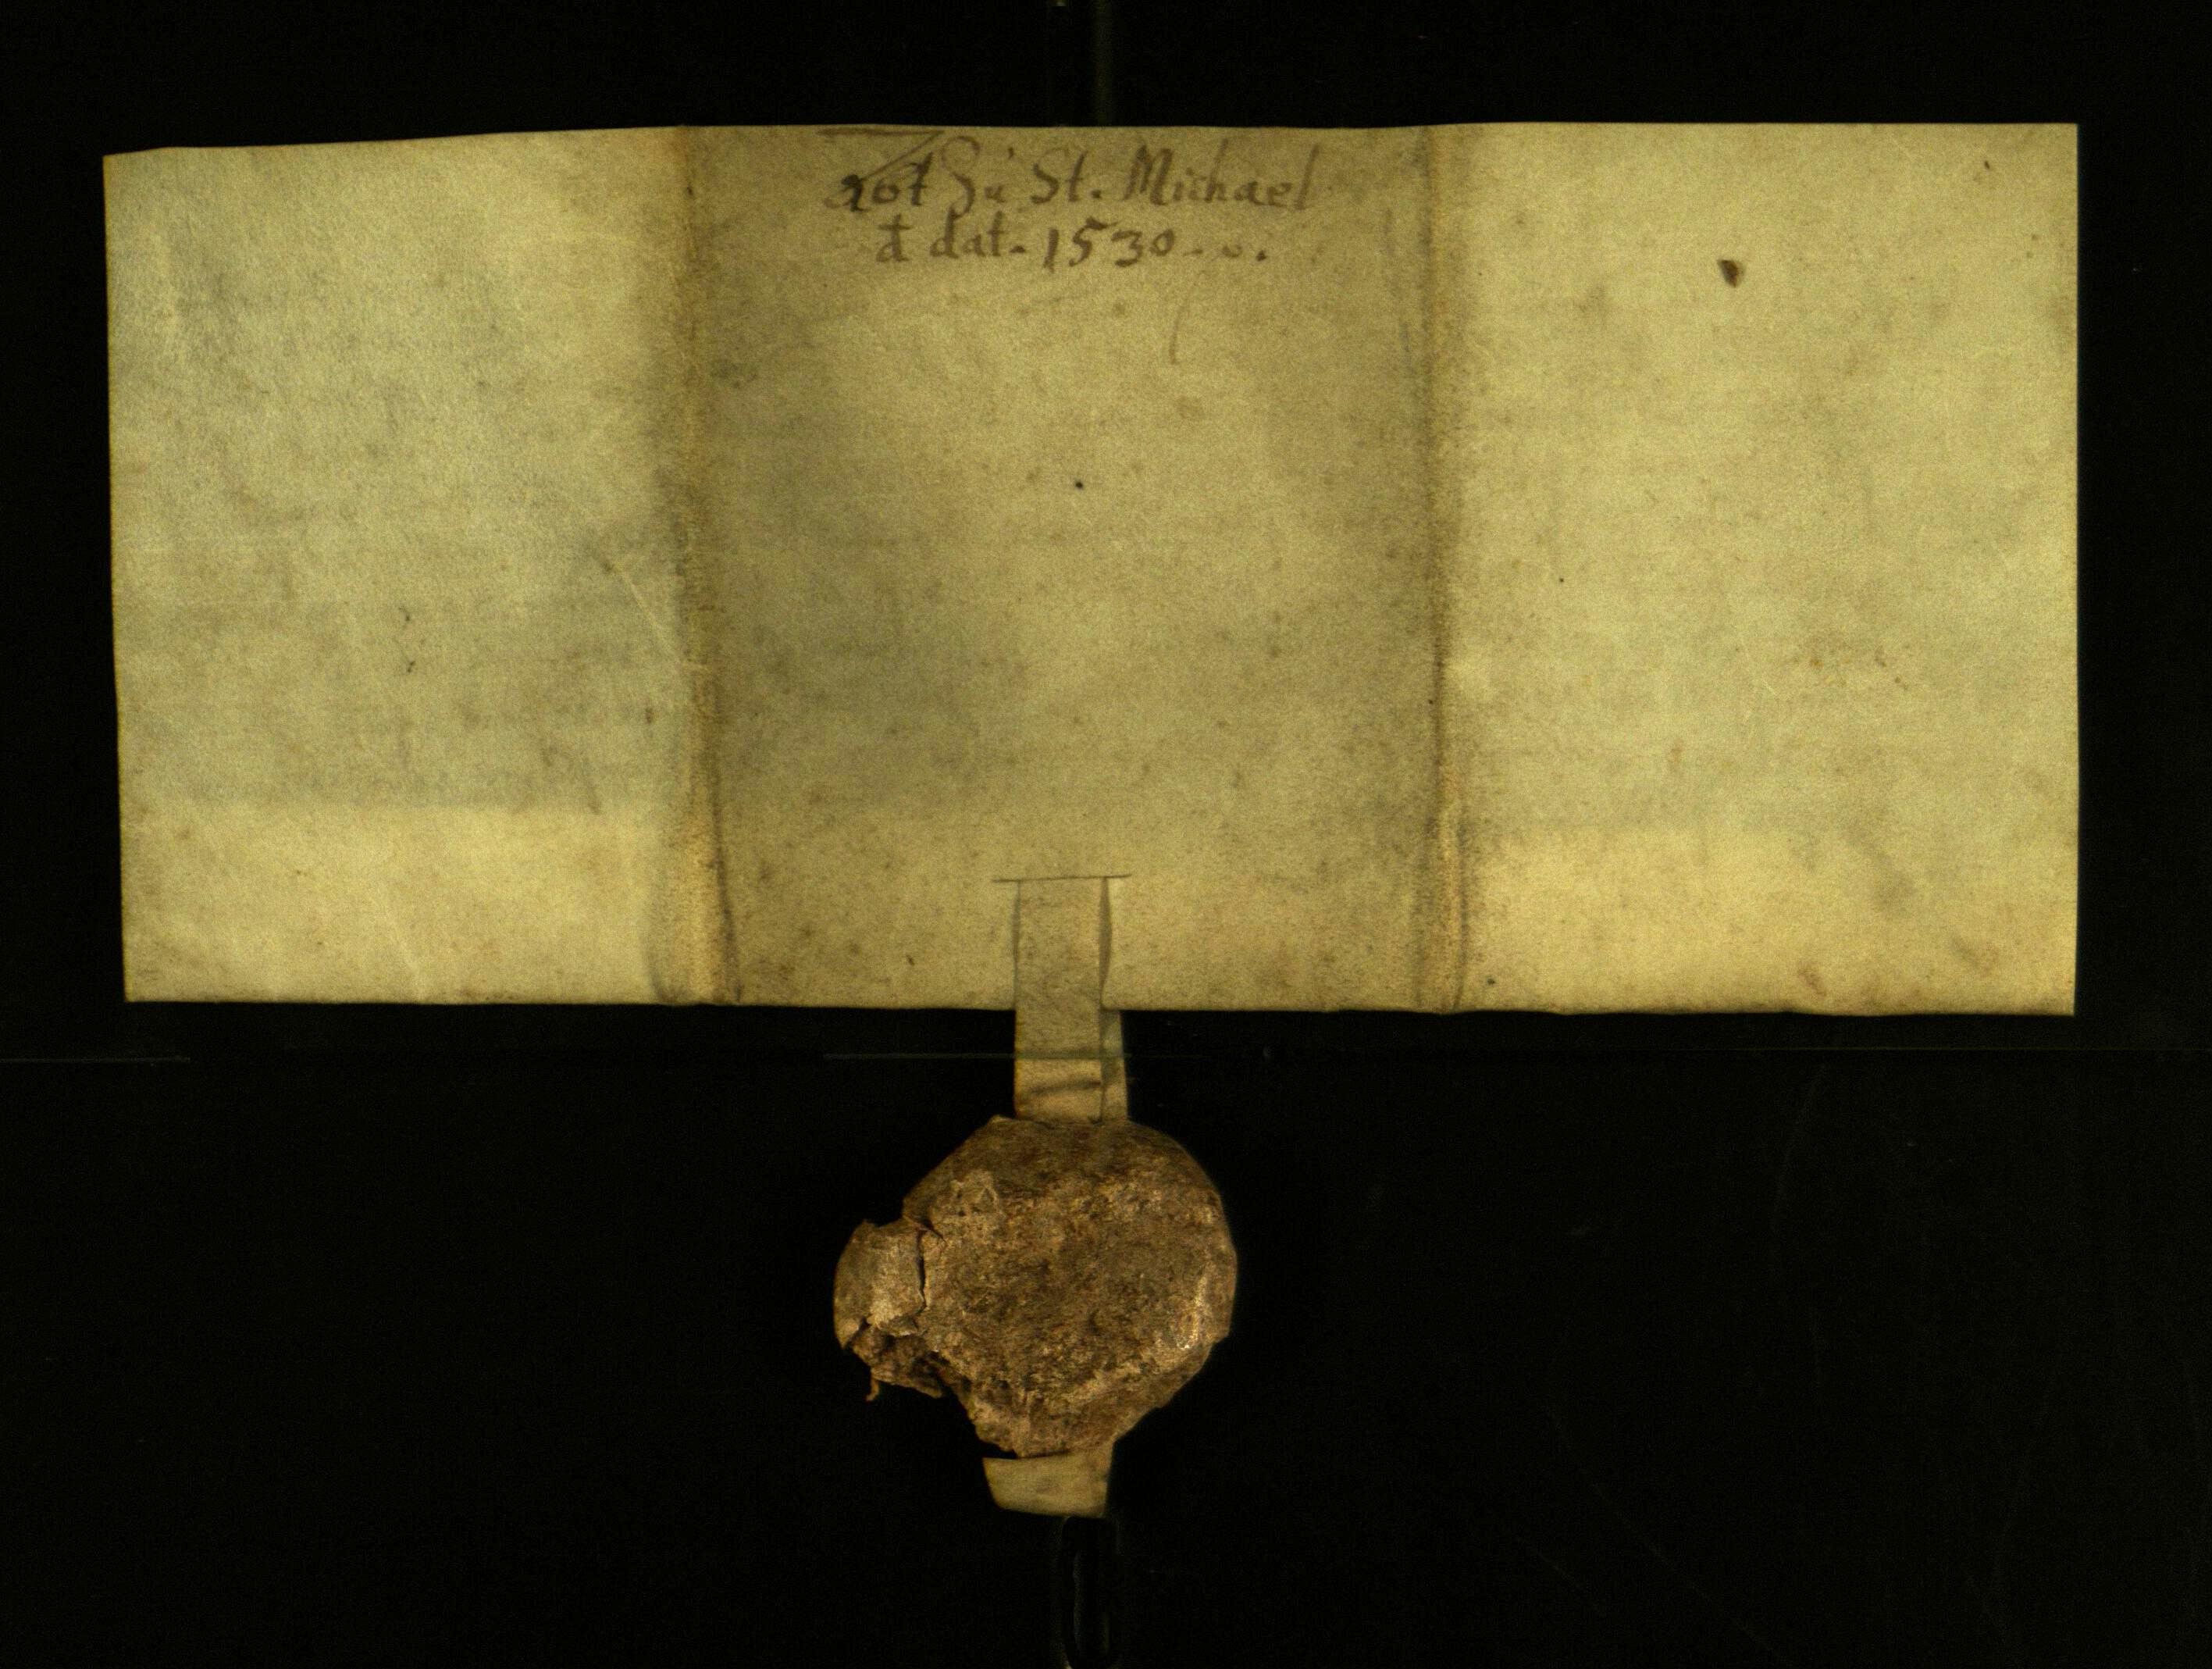 Zu St. Michael
đ dat. 1530